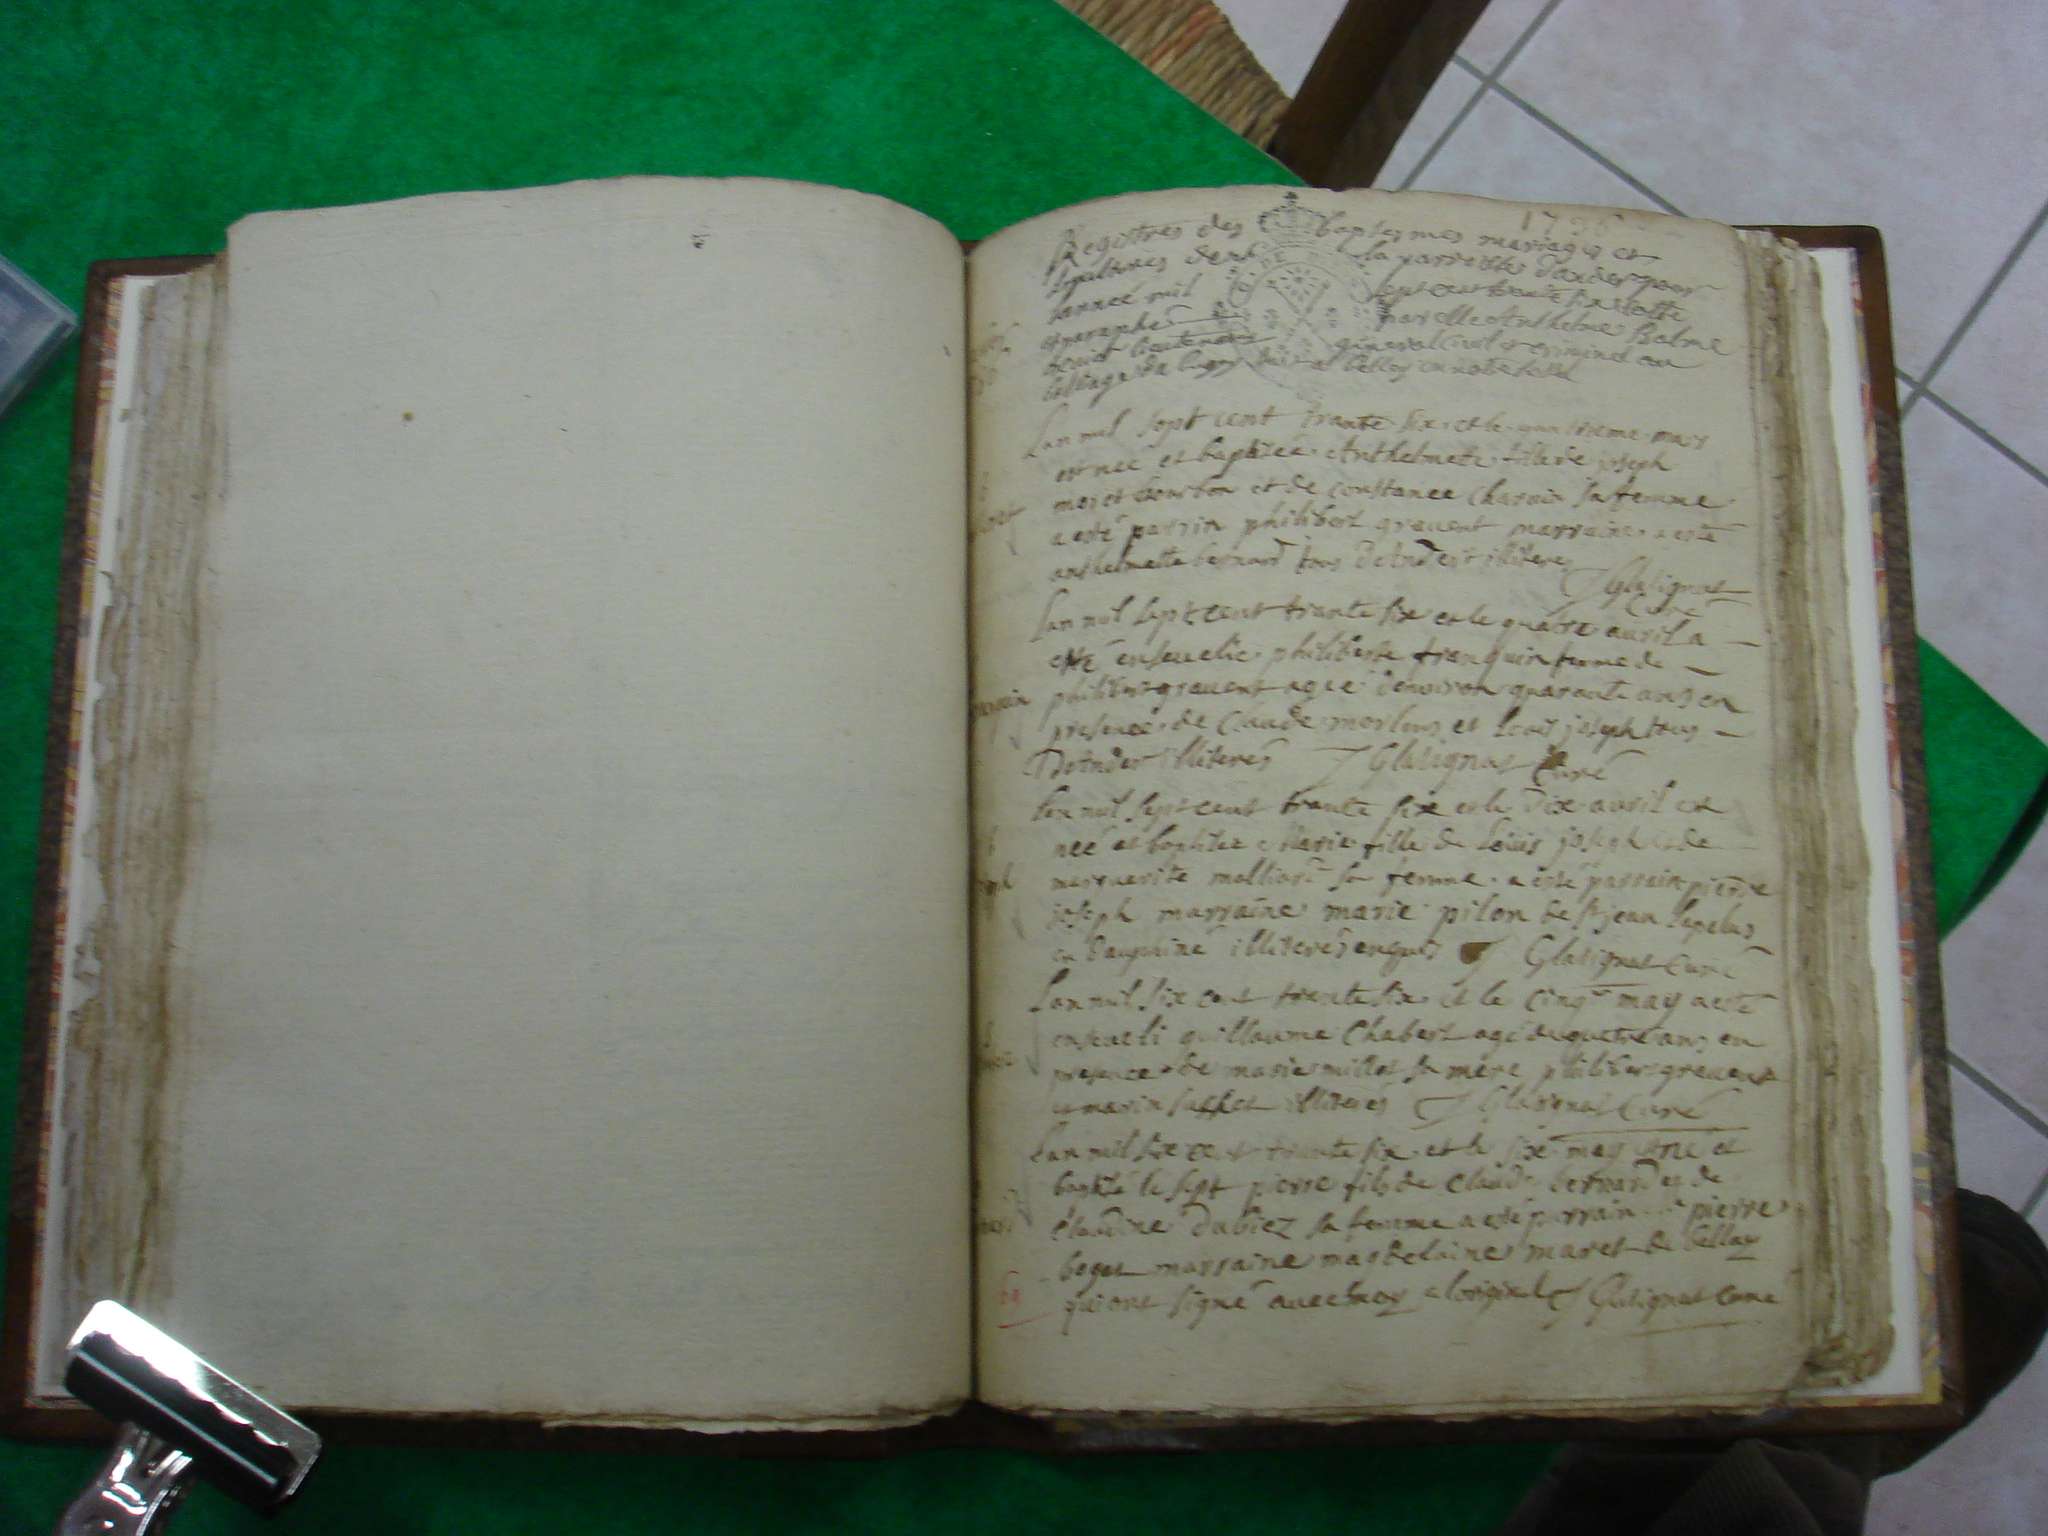 1736
Registres des baptesmes mariages et
sepultures de la parroisse dander pour
lannee mil sept cent trante six cotté
et paraphé par Anthelme Balme
lieutenant general civil et criminel au
bellay
Lan mil sept cent trante six et le mars
est neé et baptizeé Anthelmete fille de joseph
moret bourbon et de constance Charvin sa femme
a esté parrin philibert gravent marraine a esté
anthelmette bernard tous dAndert illiteres
Glasignat
Curé
Lan mil sept cent trante six et le quatre avril a
esté ensevelie philiberte franquin femme de
philibert gravent ageé denviron quarante ans en
presence de Claude et Louis joseph tous
DAnder illiterés Glasignat Curé
Lan mil sept cent trante six et le dix avril est
neé et baptizeé Marie fille de Louis joseph et de
marguerite molliard sa femme a esté parrain pierre
joseph marraine marie pilon de st jean
en dauphiné illiterés enquis Glasignat Curé
Lan mil six cent trente six et le cinqe may a esté
enseveli guillaume Chabert agé de quatre ans en
presence de marie millet sa mere philibert gravent
et marin illiterés Glasignat Curé
Lan mil six cent trante six et le six may est né et
baptizé le sept pierre fils de Claude bernard et de
Claudine dubiez sa femme a esté parrain pierre
boget marraine magdelaine maret de bellay
qui ont signé avec moy a loriginal Glasignat Curé